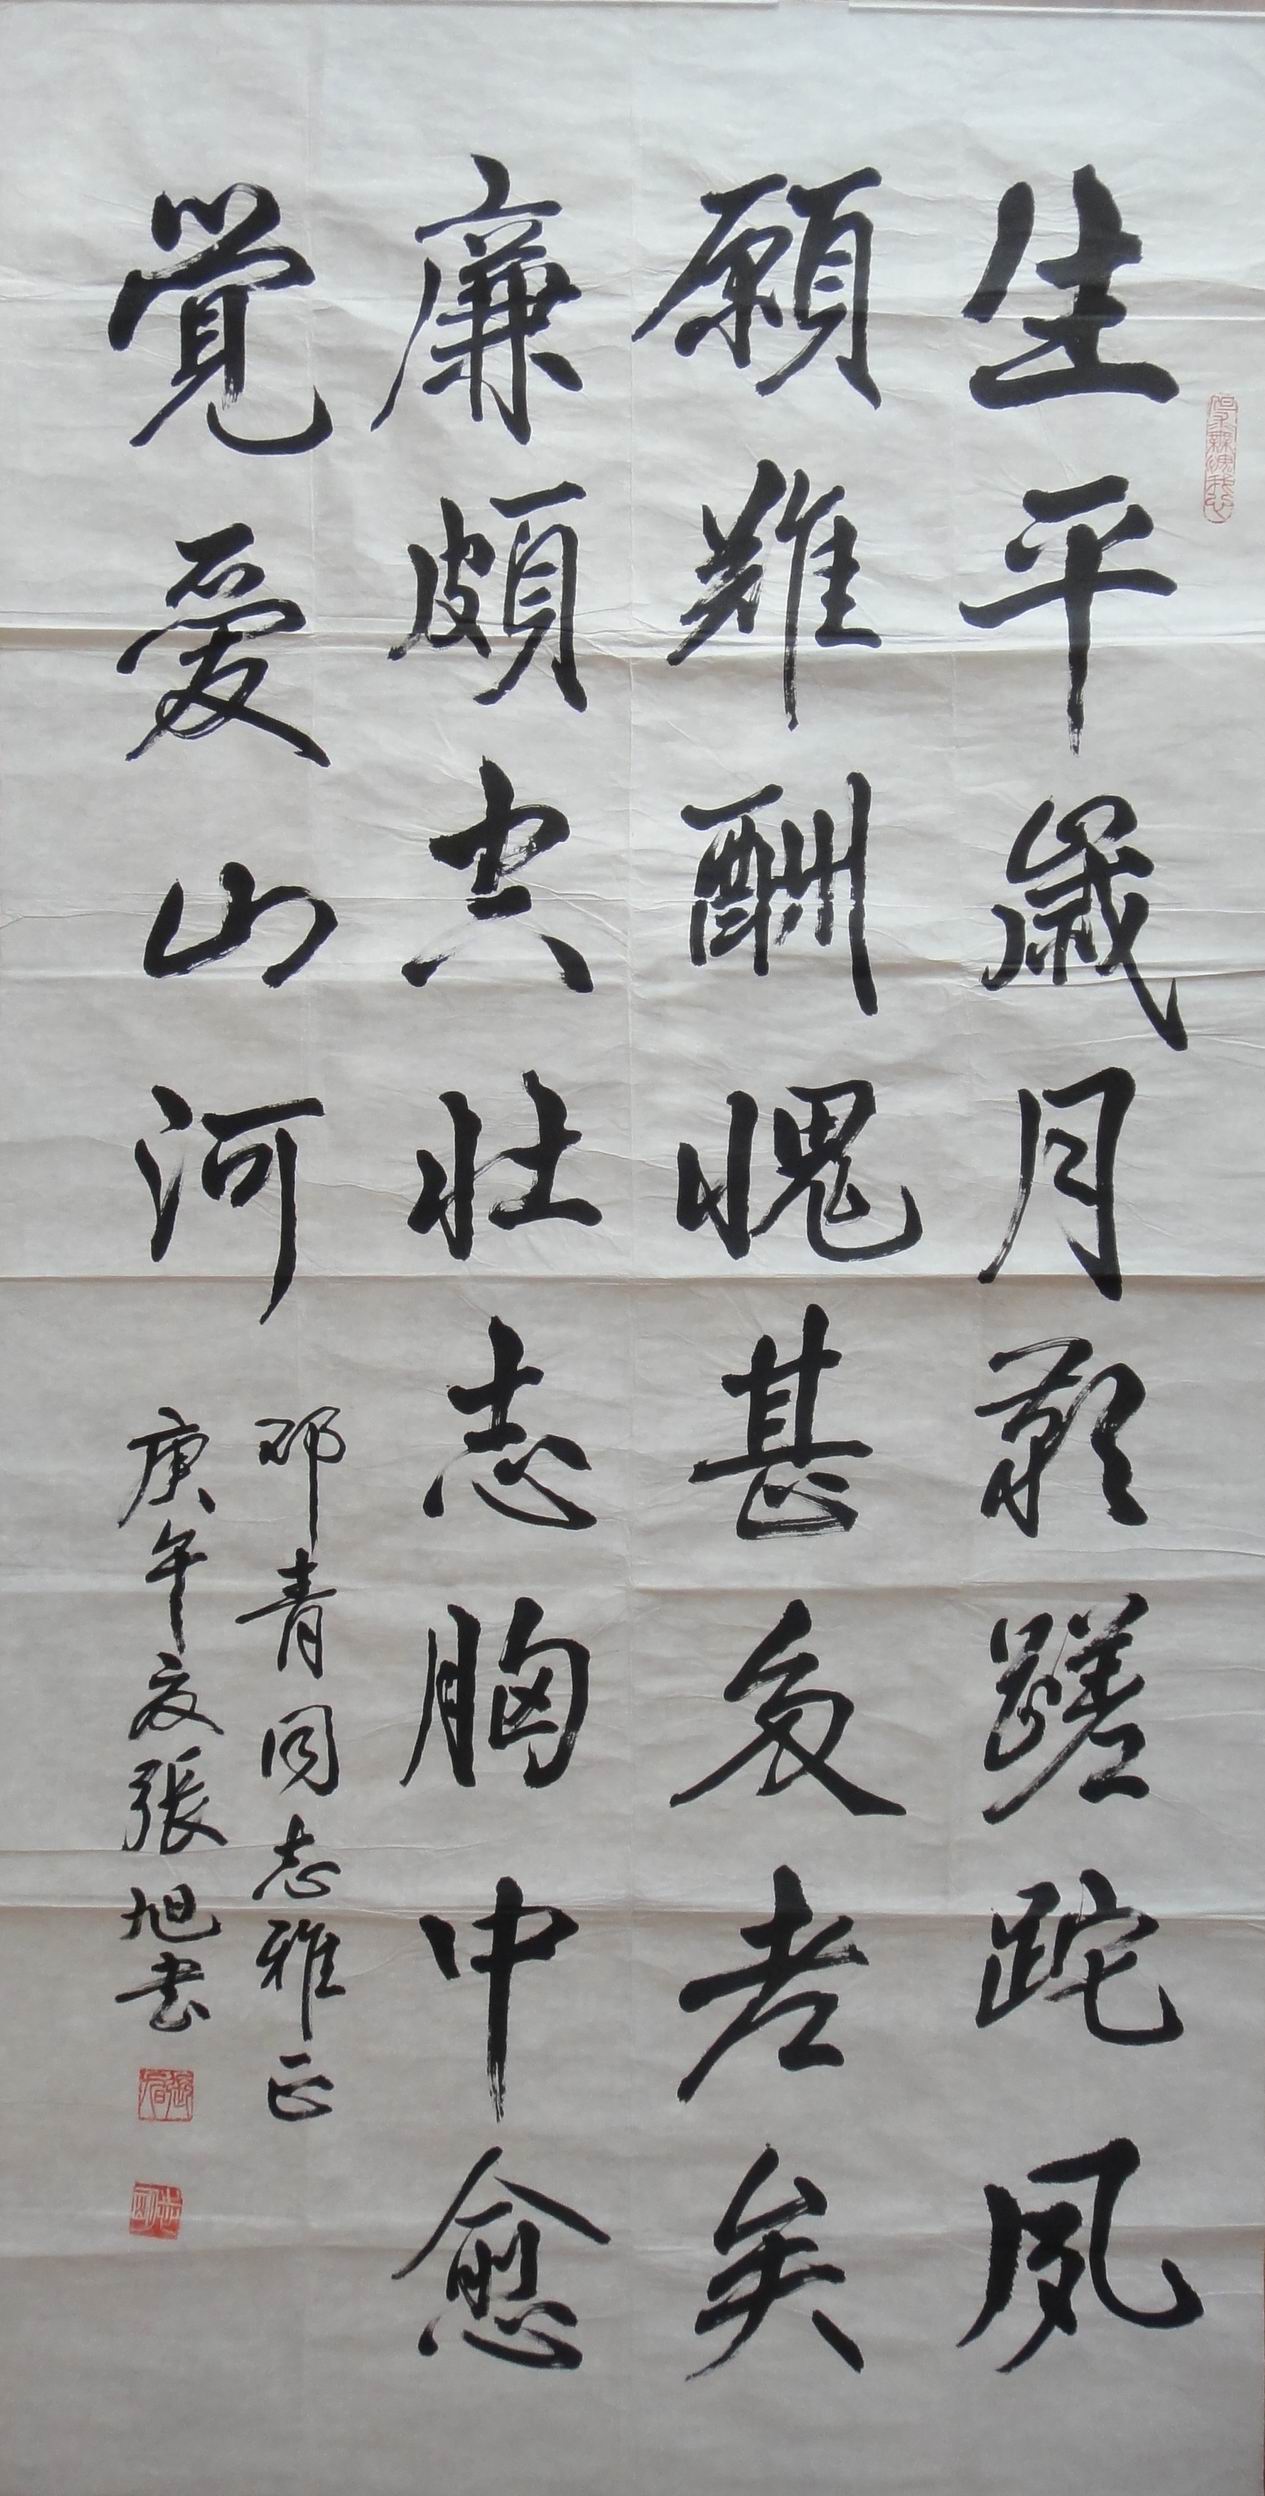 生平歲月影蹉跎夙
願難酬愧甚多老矣
廉頗空壯志胸中愈
覺愛山河
邓青同志雅正
庚午夏張旭書